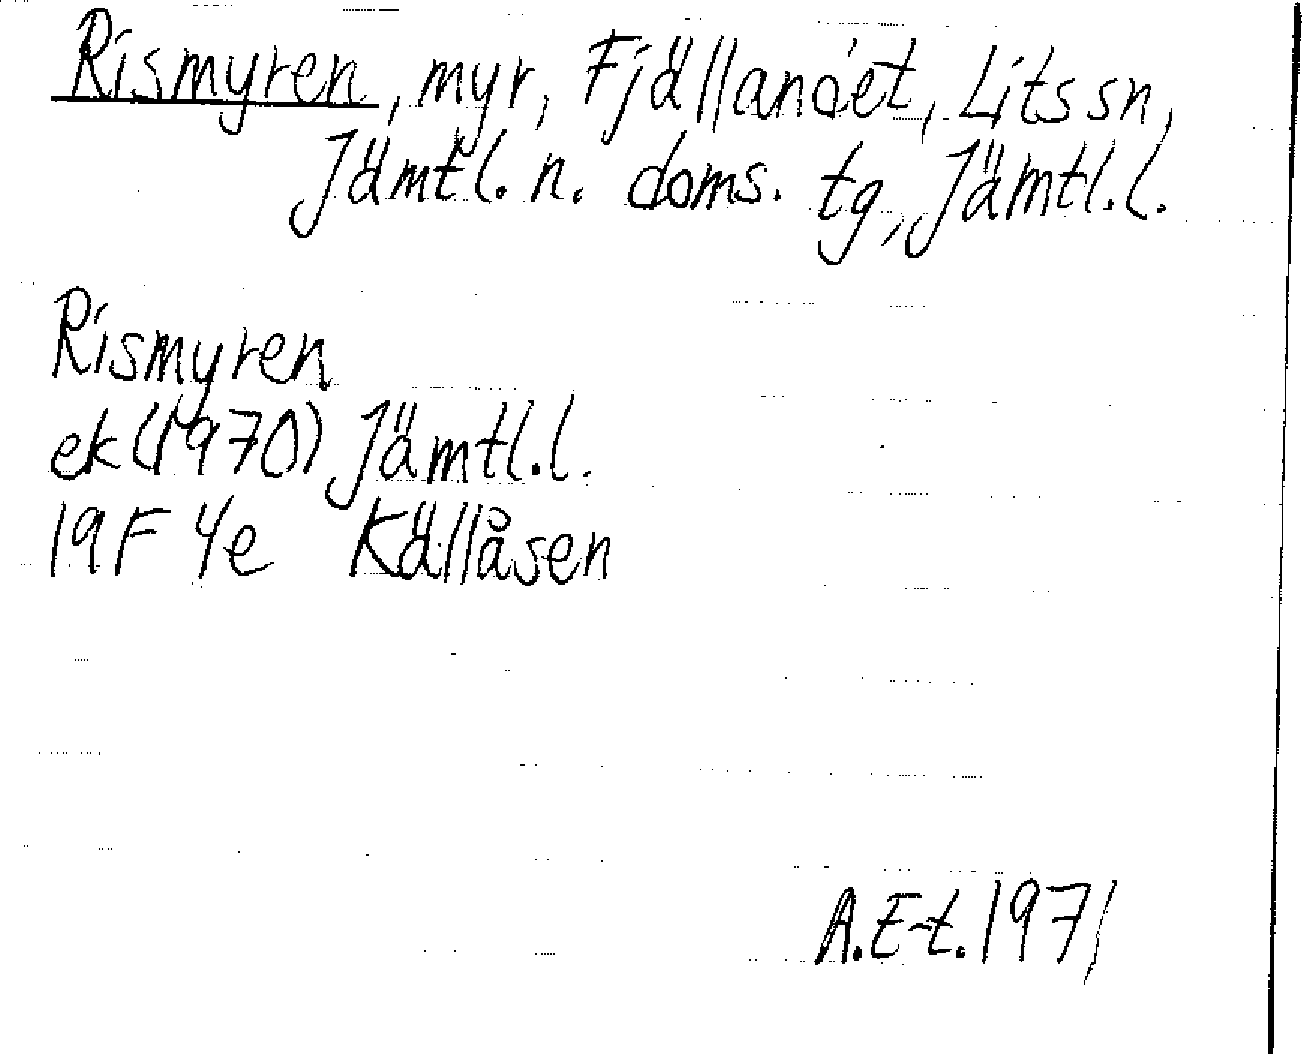 Rismyren, myr, Fjällandet, Lits sn,
Jämtl. n. doms. tg, Jämtl. l.
Rismyren
ek (1970) Jämtl. l.
19F 4e Källåsen
A. E-t. 1971